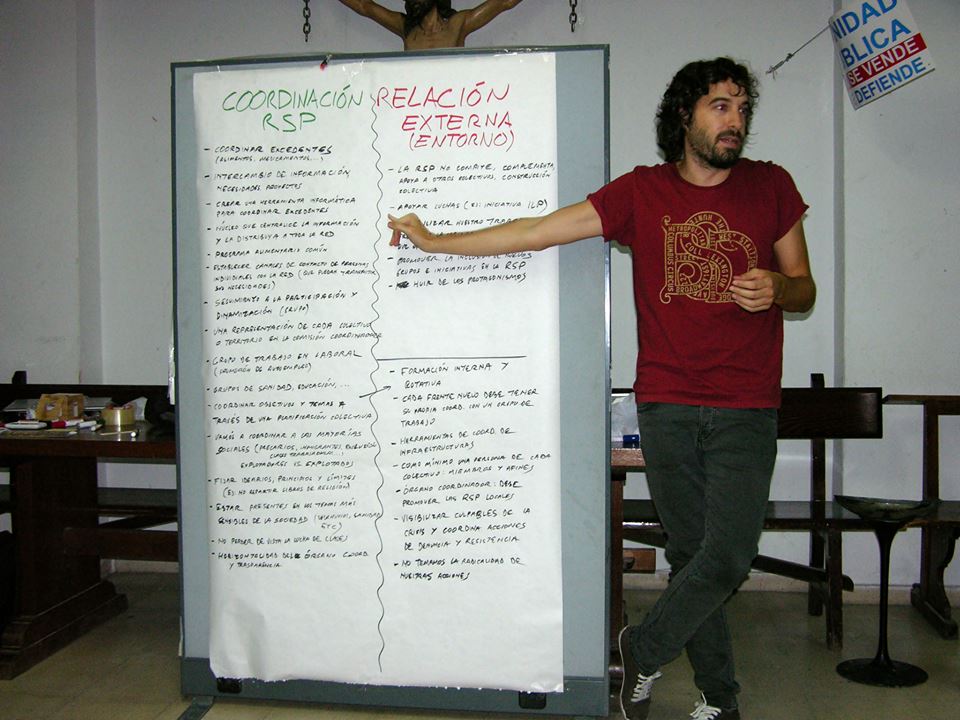 COORDINACIÓN
RSP
- COORDINAR EXCEDENTES
(ALIMENTOS, MEDICAMENTOS, ...)
- INTERCAMBIO DE INFORMACIÓN,
NECESIDADES, PROYECTOS
- CREAR UNA HERRAMIENTA INFORMÁTICA
PARA COORDINAR EXCEDENTES
- NÚCLEO QUE CENTRALICE LA INFORMACIÓN
Y LA DISTRIBUYA A TODA LA RED
- PROGRAMA ALIMENTARIO COMÚN
- ESTABLECER CANALES DE CONTACTO DE PERSONAS
INDIVIDUALES CON LA RED (QUE PUEDAN TRANSMITIR
SUS NECESIDADES)
- SEGUIMIENTO A LA PARTICIPACIÓN Y
DINAMIZACIÓN (GRUPO)
- UNA REPRESENTACIÓN DE CADA COLECTIVO
O TERRITORIO EN LA COMISIÓN COORDINADORA
- GRUPO DE TRABAJO EN LABORAL
(PROMOCIÓN DE AUTOEMPLEO)
- GRUPOS DE SANIDAD, EDUCACIÓN, ...
- COORDINAR OBJETIVOS Y TEMAS A
TRAVÉS DE UNA PLANIFICACIÓN COLECTIVA
- VAMOS A COORDINAR A LAS MAYORÍAS
SOCIALES (PRECARIOS, INMIGRANTES,
CLASE TRABAJADORA...)
EXPLOTADORES VS EXPLOTADOS
- FIJAR IDEARIOS, PRINCIPIOS Y LÍMITES
(EJ: NO REPARTIR LIBROS DE RELIGIÓN)
- ESTAR PRESENTES EN LOS TEMAS MÁS
SENSIBLES DE LA SOCIEDAD (DESAHUCIOS, SANIDAD
ETC)
- NO PERDER DE VISTA LA LUCHA DE CLASES
- HORIZONTALIDAD DEL ÓRGANO COORD
Y TRASPARENCIA
RELACIÓN
EXTERNA
(ENTORNO)
- LA RSP NO COMPITE, COMPLEMENTA,
APOYA A OTROS COLECTIVOS, CONSTRUCCIÓN
COLECTIVA
- APOYAR LUCHAS (EJ: INICIATIVA ILP)
NUESTRO
PROMOVER LA INCLUSIÓN DE NUEVOS
GRUPOS E INICIATIVAS EN LA RSP
- HUIR DE LOS PROTAGONISMOS
- FORMACIÓN INTERNA Y
ROTATIVA
- CADA FRENTE NUEVO DEBE TENER
SU PROPIA COORD. CON UN GRUPO DE
TRABAJO
- HERRAMIENTAS DE COORD. DE
INFRAESTRUCTURAS
- COMO MÍNIMO UNA PERSONA DE CADA
COLECTIVO: MIEMBROS Y AFINES
- ÓRGANO COORDINADOR: DEBE
PROMOVER LAS RSP LOCALES
- VISIBILIZAR CULPABLES DE LA
CRISIS Y COORDINA ACCIONES
DE DENUNCIA Y RESISTENCIA
- NO TEMAMOS LA RADICALIDAD DE
NUESTRAS ACCIONES
NIDAD
BLICA
SE VENDE
DEFIENDE.
METROPOLITAN
COLUMBUS CIRCUS
LEXINGTON